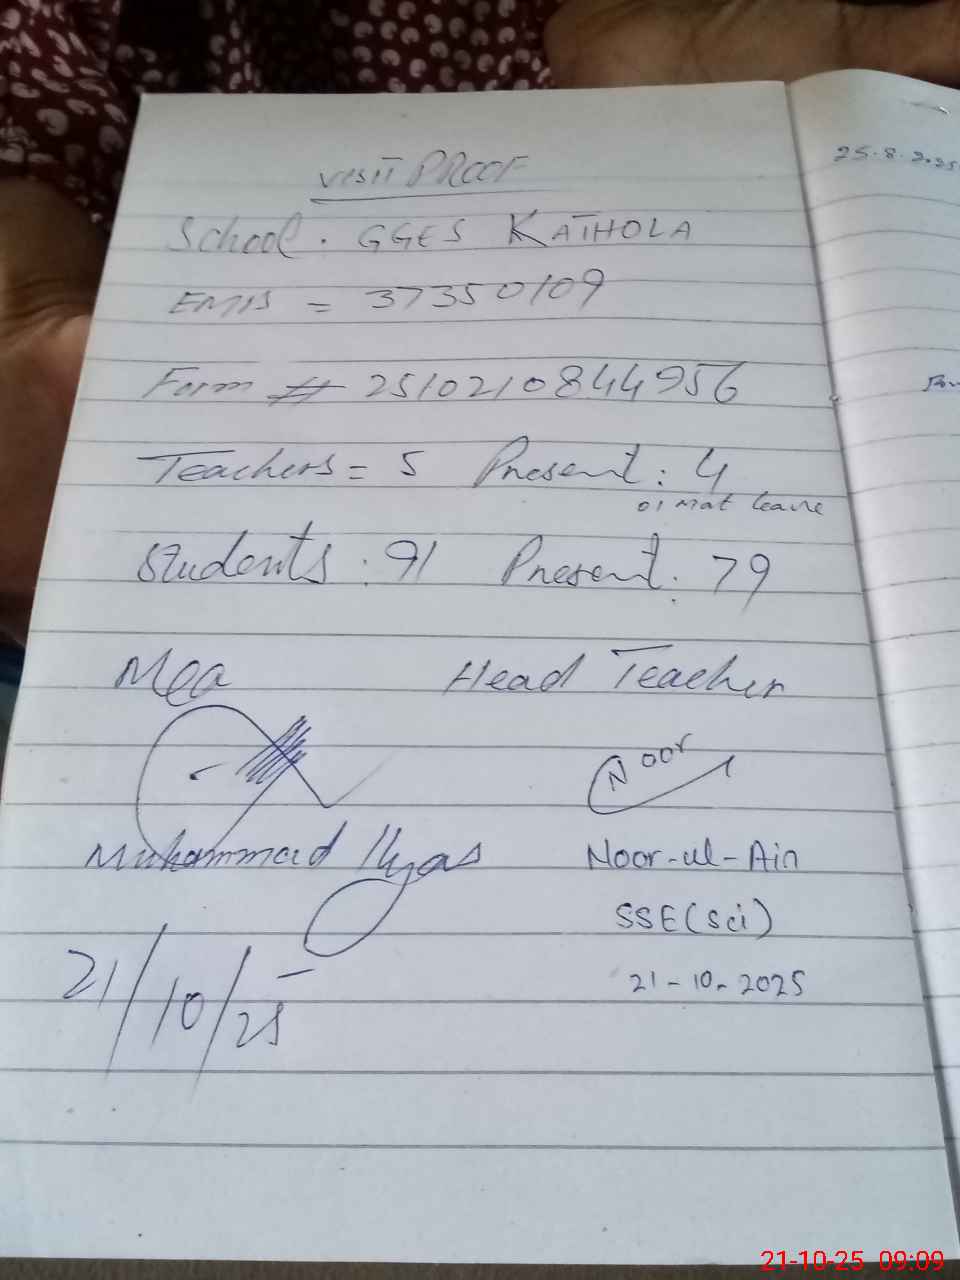 VISIT PROOF
School . GGES KATHOLA
EMIS = 37350109
Form # 2510210844956
Teachers = 5 Present : 4
01 mat leave
Students : 91 Present : 79
Mea Head Teacher
Noor
Muhammad Ilyas Noor-ul-Ain
SSE(Sci)
21/10/25 21-10-2025
25.8.2025
21-10-25 09:09